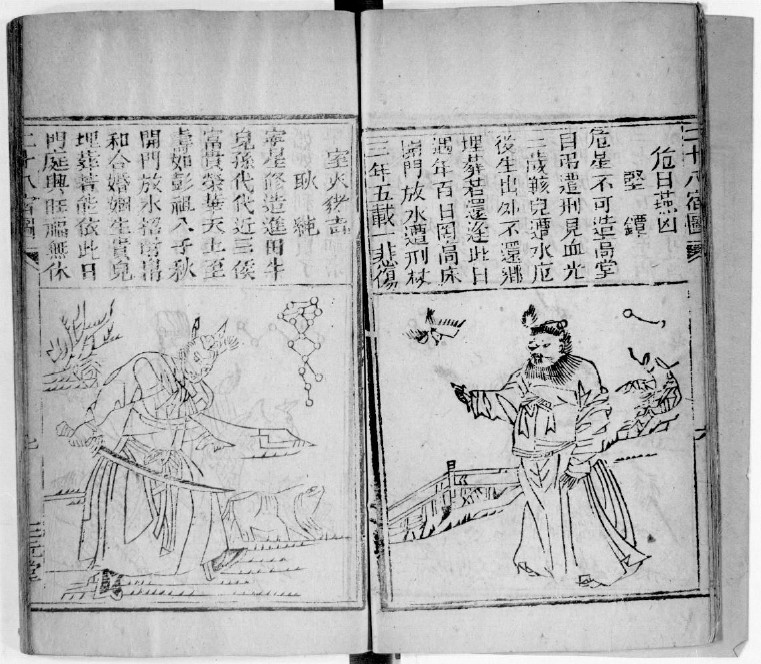 二十八宿圖
危日燕凶
堅鐔
危星不可造高堂
自吊遭刑見血光
三歲孩兒遭水厄
後生出外不還鄉
埋葬若還逢此日
週年百日臥高床
開門放水遭刑杖
三年五載一悲傷
室火猪吉
耿純
室星修造進田牛
兒孫代代近王侯
富貴榮華天上至
壽如彭祖八千秋
開門放水招財帛
和合婚姻生貴兒
埋葬若能依此日
門庭興旺福無休
二十八宿圖